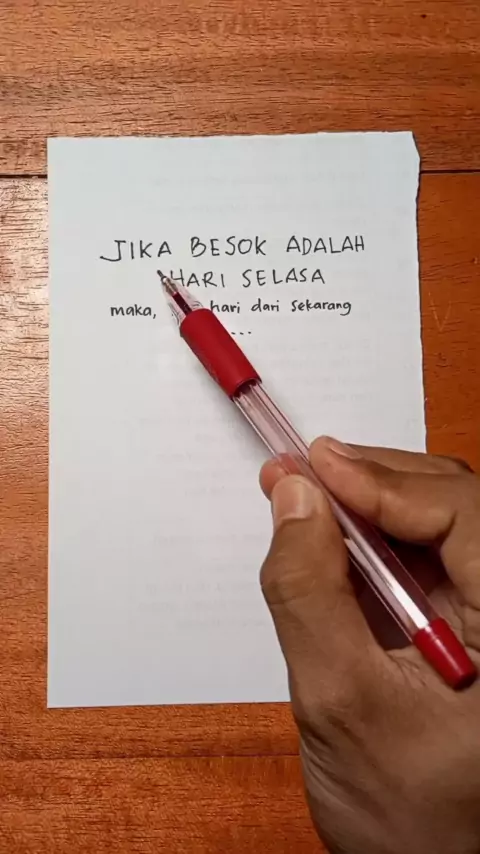 JIKA BESOK ADALAH
HARI SELASA
maka, hari dari sekarang
...